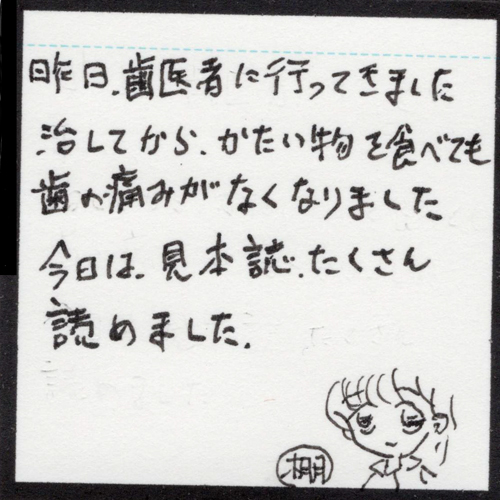 昨日、歯医者に行ってきました
治してから、かたい物を食べても
歯の痛みがなくなりました
今日は、見本誌、たくさん
読めました。
棚